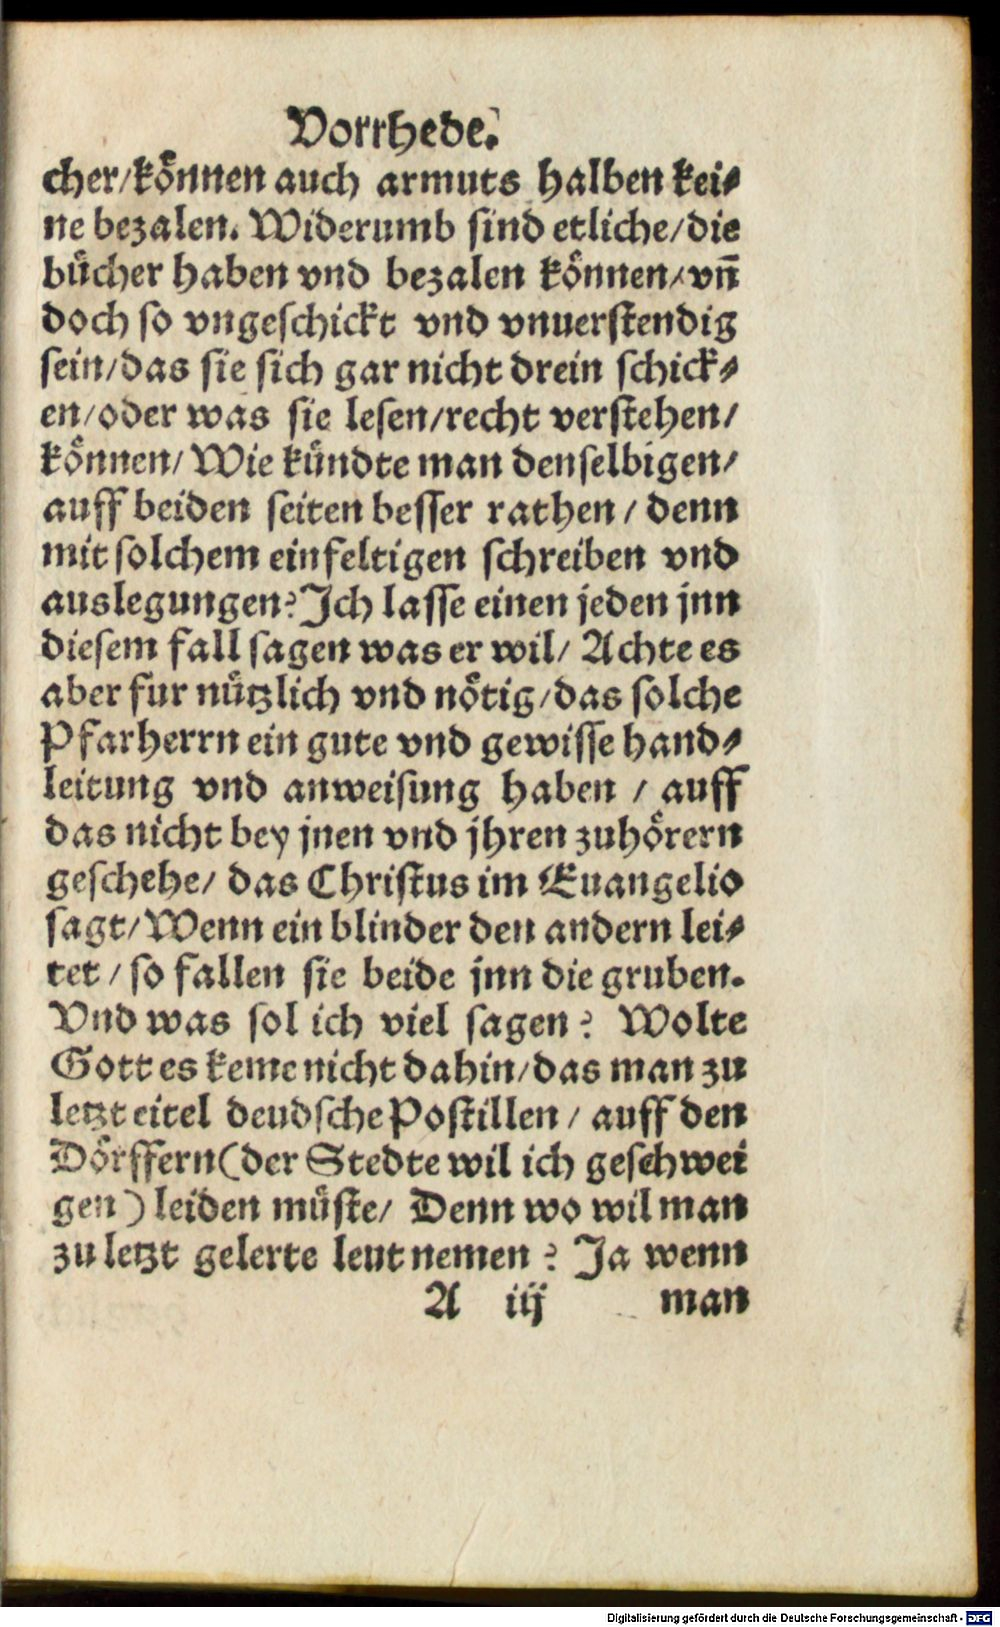 Vorrhede.
cher/können auch armuts halben kei⸗
ne bezalen. Widerumb sind etliche/die
bücher haben vnd bezalen können/vn̄
doch so vngeschickt vnd vnuerstendig
sein/das sie sich gar nicht drein schick⸗
en/oder was sie lesen/recht verstehen/
können/Wie kündte man denselbigen/
auff beiden seiten besser rathen/denn
mit solchem einfeltigen schreiben vnd
auslegungen? Ich lasse einen jeden jnn
diesem fall sagen was er wil/Achte es
aber fur nützlich vnd nötig/das solche
Pfarherrn ein gute vnd gewisse hand⸗
leitung vnd anweisung haben / auff
das nicht bey jnen vnd jhren zuhörern
geschehe/ das Christus im Euangelio
sagt/Wenn ein blinder den andern lei⸗
tet / so fallen sie beide jnn die gruben.
Vnd was sol ich viel sagen? Wolte
Gott es keme nicht dahin/das man zu
letzt eitel deudsche Postillen / auff den
Dörffern(der Stedte wil ich geschwei
gen) leiden müste/ Denn wo wil man
zu letzt gelerte leut nemen? Ja wenn
A iij man
Digitalisierung gefördert durch die Deutsche Forschungsgemeinschaft - DFG